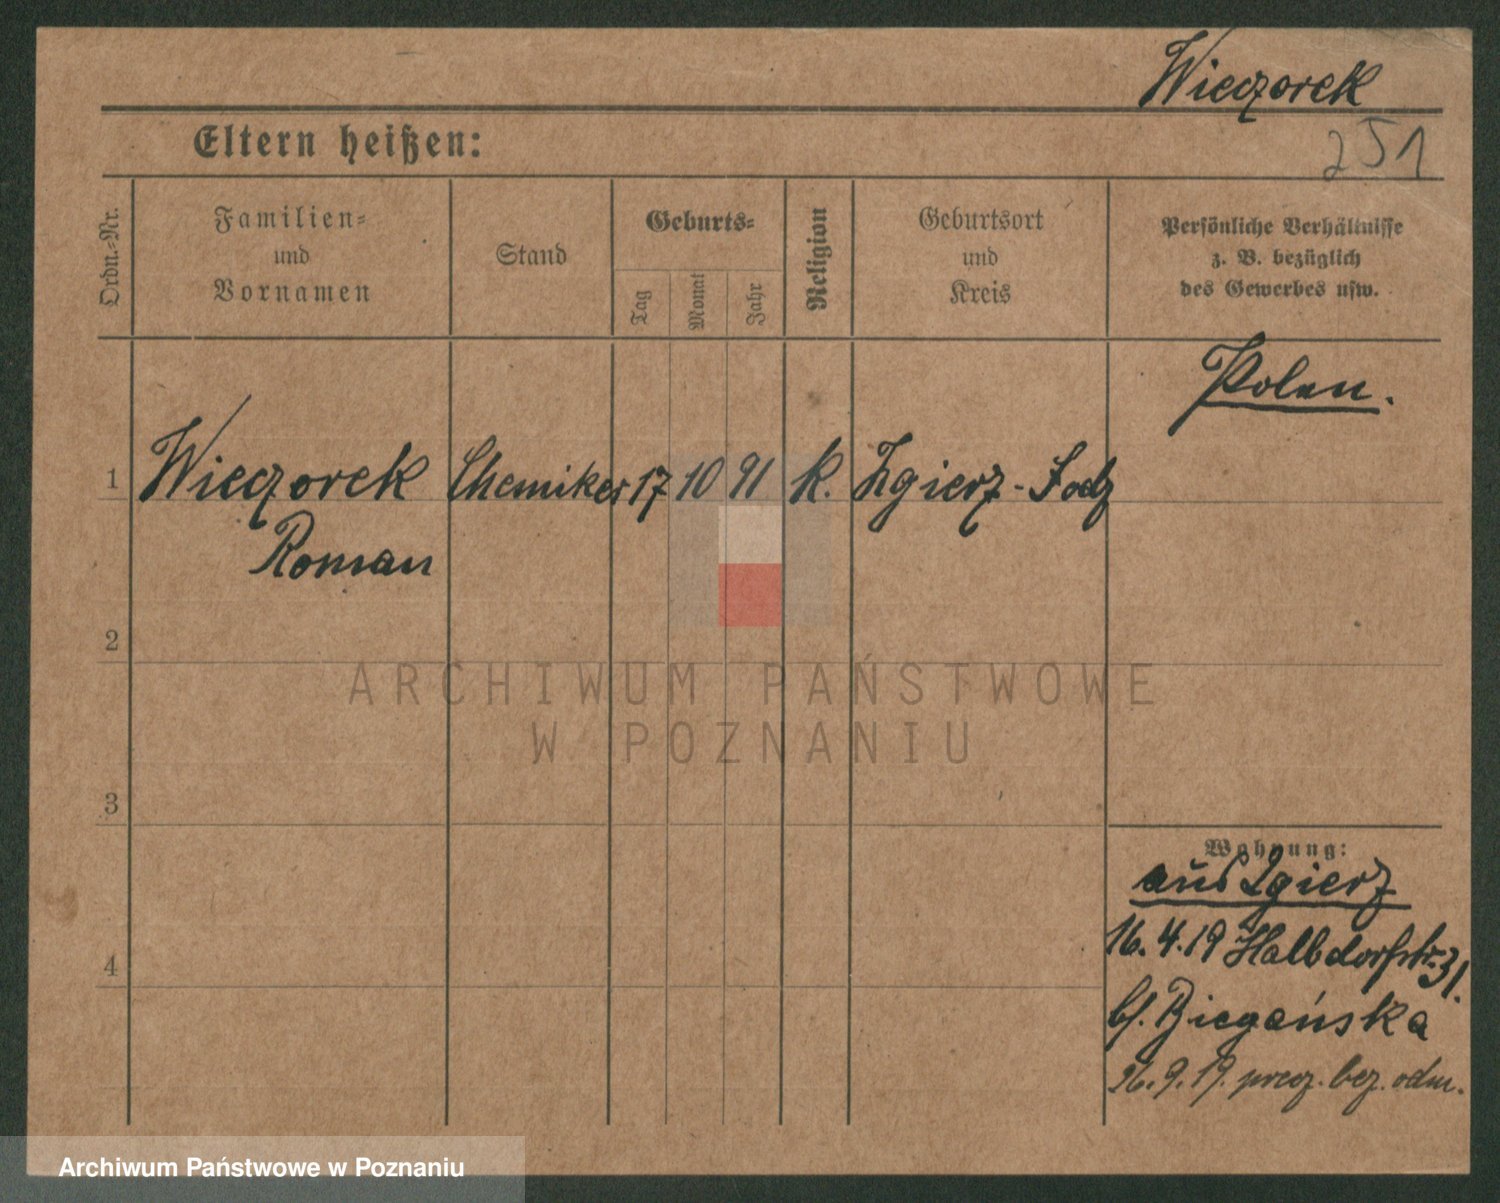 Wieczorek
Eltern heißen:
251
Ordn.-Nr.
Familien-
und
Vornamen
Stand
Geburts-
Tag
Monat
Jahr
Religion
Geburtsort
und
Kreis
Persönliche Verhältnisse
z. B. bezüglich
des Gewerbes usw.
Polen.
1 Wieczorek Chemiker 17 10 91 k. Zgierz - Lodz
Roman
2
ARCHIWUM PAŃSTWOWE
W POZNANIU
3
Wohnung:
aus Zgierz
4
16.4.19 Halbdorfstr. 31.
bf. Biegańska
26.9.19. precz. bez. odm.
Archiwum Państwowe w Poznaniu